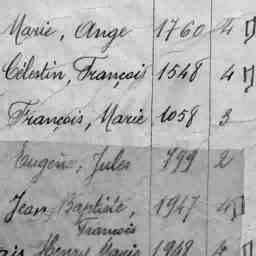 Marie, Ange 1760 4
Célestin, François 1548 4
François, Marie 1058 3
Eugène, Jules 799 2
Jean Baptiste, 1947 4
François
Henry Marie 1948 4